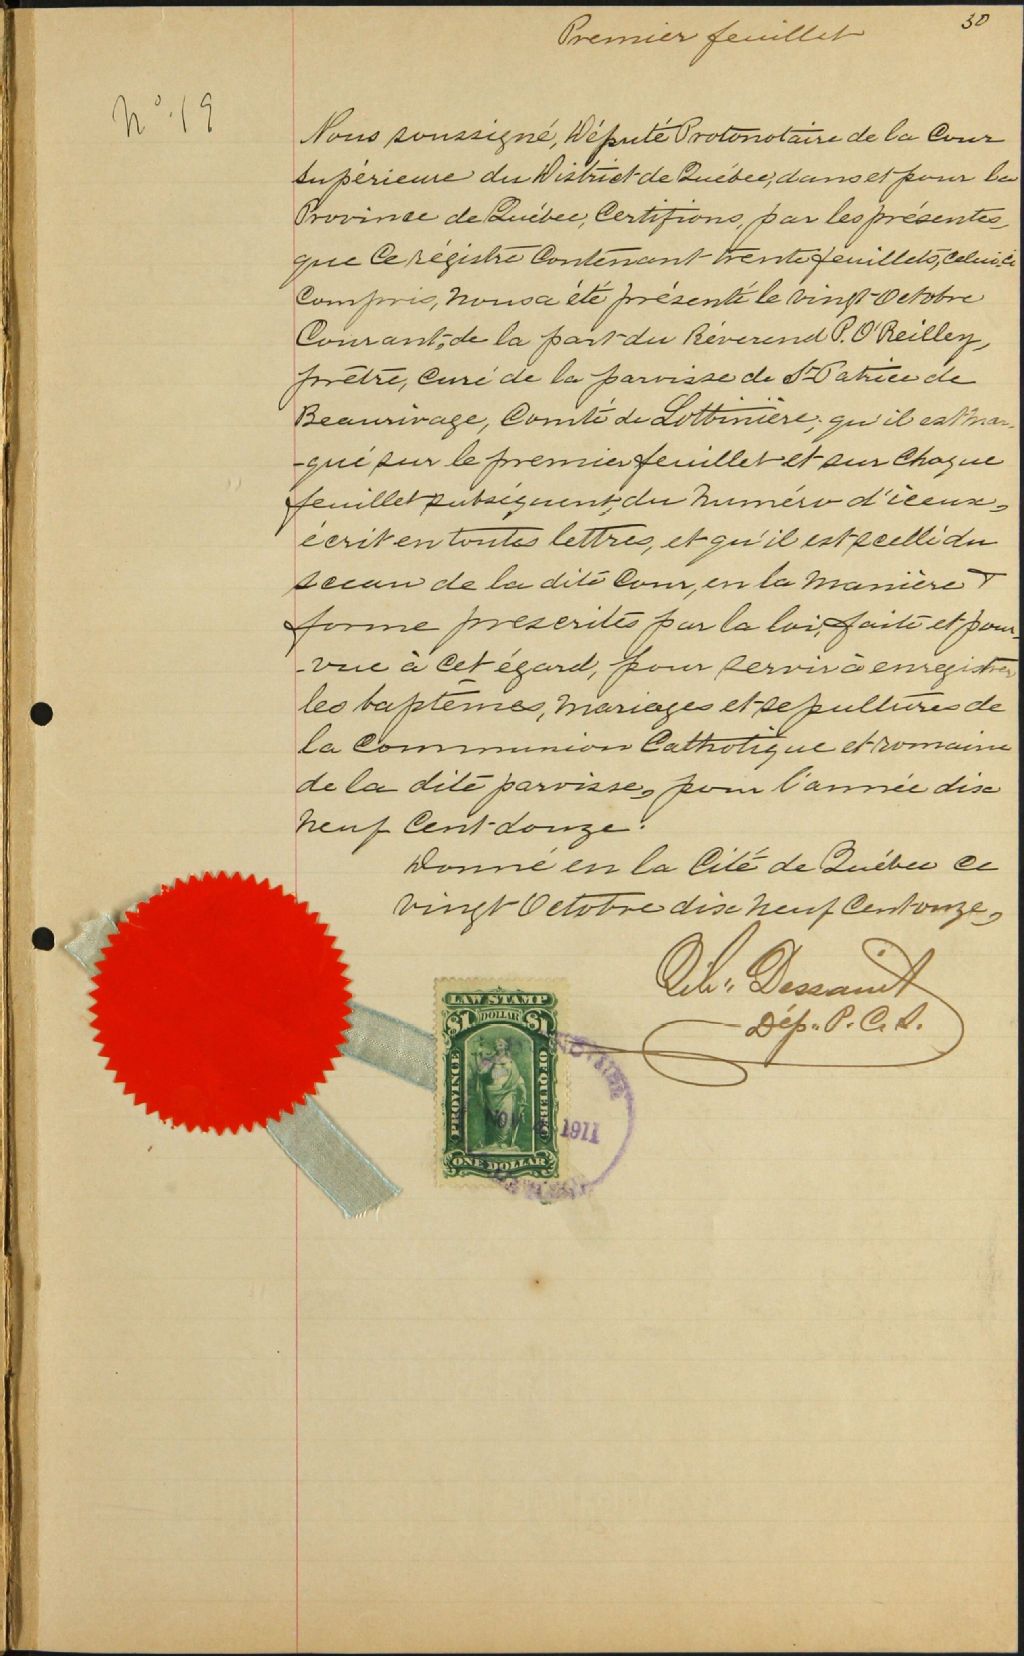 30
Premier feuillet
No. 19
Nous soussigné, Député Protonotaire de la Cour
Supérieure du District de Québec, dans et pour la
Province de Québec, Certifions, par les présentes,
que Ce régistre Contenant trente feuillets, Celui-Ci
Compris, nous a été présenté le vingt Octobre
Courant, de la part du Révérend P. O'Reilley,
prêtre, Curé de la paroisse de St Patrice de
Beaurivage, Comté de Lotbinière; qu'il est mar-
-qué sur le premier feuillet et sur Chaque
feuillet subséquent, du Numéro d'iceux,
écrit en toutes lettres, et qu'il est scellé du
sceau de la dite Cour, en la Manière &
forme prescrites par la loi, faite et pour-
-vue à cet égard, pour servir à enregistrer
les baptêmes, Mariages et sépultures de
la Communion Catholique et romaine
de la dite paroisse, pour l'année dix
neuf Cent douze.
Donné en la Cité de Québec ce
vingt Octobre dix neuf Cent onze,
Dessaint
Dép. P. C. S.
LAW STAMP
$1 DOLLAR $1
PROVINCE OF QUEBEC
NOV 1911
ONE DOLLAR